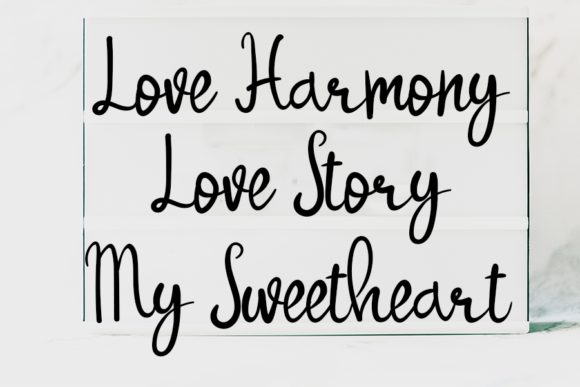 Love Harmony
Love Story
My Sweetheart